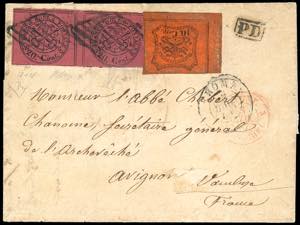 PD
ROMA
Monsieur l'Abbé Chabert
Chanoine, Secrétaire general
de l'Archevêché
Avignon
Vaucluse
France